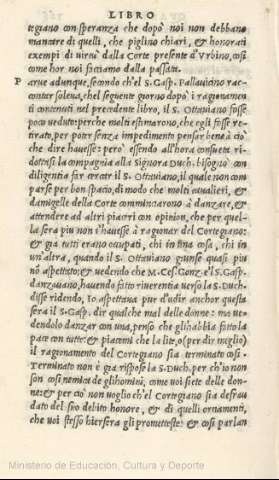 LIBRO
tegiano con speranza che dopò noi non debbano
mancare di quelli, che piglino chiari, & honorati
exempi di virtù dalla Corte presente d'Vrbino, così
come hor noi facciamo dalla passata.
Parue adunque, secondo ch'el S. Gasp. Pallauicino rac-
contar solena, chel seguente giorno dopo i ragionamen
ti contenuti nel precedente libro, il S. Ottauiano fosse
poco veduto: perche molti estimarono, che egli fosse re-
tirato, per poter senza impedimento pensar bene à ciò
che dire hauesse: però essendo all'hora consueta ri-
dottasi la compagnia alla Signora Duch. bisognò con
diligentia far cercar il S. Ottauiano, il quale non com
parse per bon spacio, di modo che molti caualieri, &
damigelle della Corte cominciarono à danzare, &
attendere ad altri piaceri con opinion, che per quel-
la sera piu non s'hauesse à ragionar del Cortegiano:
& gia tutti erano occupati, chi in una cosa, chi in
un'altra, quando il S. Ottauiano giunse quasi piu
nò aspettato; & vedendo che M. Ces. Gonz. e'l S. Gasp.
danzauano, hauendo fatto riuerentia verso la S. Duch.
disse ridendo, Io aspettaua pur d'udir anchor questa
sera il S. Gasp. dir qualche mal delle donne: ma ve-
dendolo danzar con una, penso che glihabbia fatto la
pace con tutte: & piacemi che la lite, o (per dir meglio)
il ragionamento del Cortegiano sia terminato così.
Terminato non è gia rispose la S. Duch. per ch'io non
son così nemica de glihomini, come voi siete delle don-
ne: & per ciò non voglio ch'el Cortegiano sia defrau
dato del suo debito honore, & di quelli ornamenti,
che voi stesso hiersera gli prometteste: & così parlan
Ministerio de Educación, Cultura y Deporte